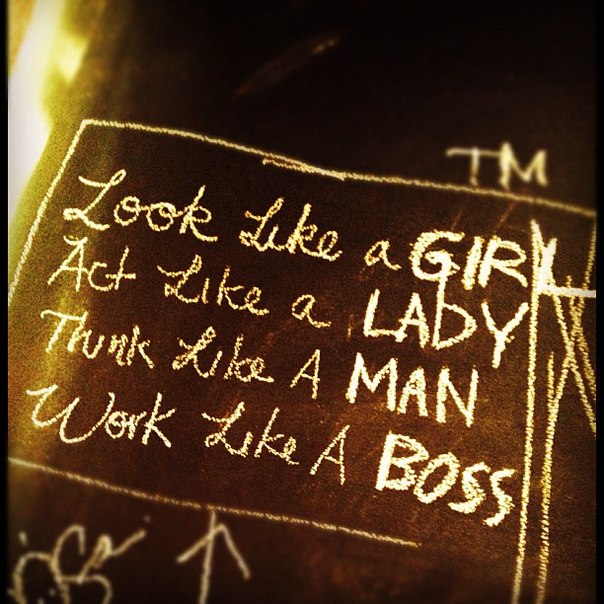 TM
Look Like a GIRL
Act Like a LADY
Think Like A MAN
Work Like A BOSS